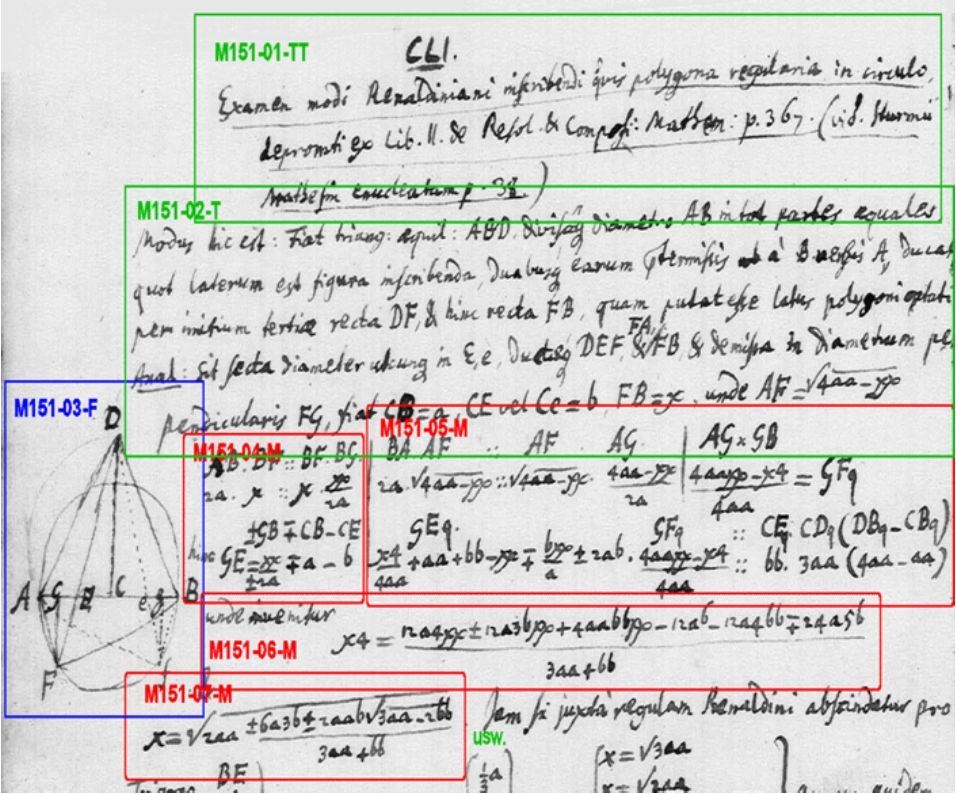 M151-01-TT
CLI.
Examen modi Renaldiniani inscribendi quævis polygona regularia in circulo,
depromti ex Lib. II. de Resol. & Compos: Mathem: p. 367. (vid. Sturmii
Mathesin enucleatam p. 38.)
M151-02-T
Modus hic est: Fiat triang: æquil: ABD. divisaq diametro AB in tot partes equales
quot laterum est figura inscribenda, duabusq earum omissis à B versus A, ducat
per initium tertiæ recta DF, & hinc recta FB, quam putat esse latus polygoni optati
FA,
Anal: Sit secta diameter utcunq in E, e, ductisq DEF, & FB, & demissa in diametrum pe
pendicularis FG, fiat CB=a, CE vel Ce=b, FB=x, unde AF=√4aa-xx
M151-03-F
D
A G E C e g B
F f
M151-04-M
AB. BF :: BF. BG
2a. x :: x. xx/2a
±GB∓CB-CE
hinc GE=xx/±2a ∓a-b
M151-05-M
BA. AF :: AF. AG. | AG×GB
2a. √4aa-xx :: √4aa-xx. 4aa-xx/2a | 4aaxx-x4/4aa = GFq
GEq. GFq :: CEq. CDq (DBq-CBq)
x4/4aa +aa+bb-xx∓ bxx/a ±2ab. 4aaxx-x4/4aa :: bb. 3aa (4aa-aa)
unde invenitur
M151-06-M
x4 = 12a4xx±12a3bxx+4aabbxx-12a6-12a4bb∓24a5b / 3aa+bb
M151-07-M
x=√2aa ±6a3b±2aab√3aa-2bb / 3aa+bb
Jam si juxta regulam Renaldini abscindatur pro
usw.
BE
½a
x=√3aa
x=√2aa
quidem